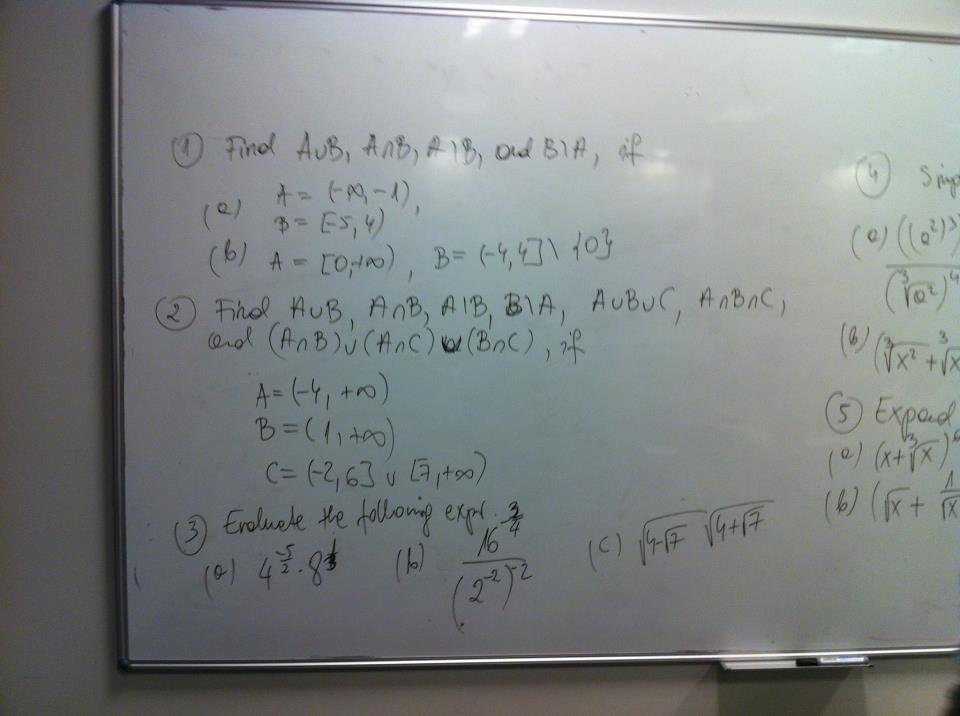 ① Find A∪B, A∩B, A\B, and B\A, if
(a) A = (-∞, -1),
B = [-5, 4)
(b) A = [0, +∞), B = (-4, 4] \ {0}
② Find A∪B, A∩B, A\B, B\A, A∪B∪C, A∩B∩C,
and (A∩B)∪(A∩C)∪(B∩C), if
A = (-4, +∞)
B = (1, +∞)
C = (-2, 6] ∪ [7, +∞)
③ Evaluate the following expr.
(a) 4^(-5/2) · 8 (b) 16^(3/4) / (2^(-2))^(-2) (c) √(4-√7) √(4+√7)
④ Simp
(a) ((a²)³
(∛a²)⁴
(b) (∛x² + ∛x
⑤ Expand
(a) (x+∛x)
(b) (√x + 1/√x